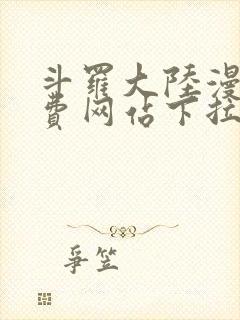 斗羅大陸漫
費网佔下拉
爭笠